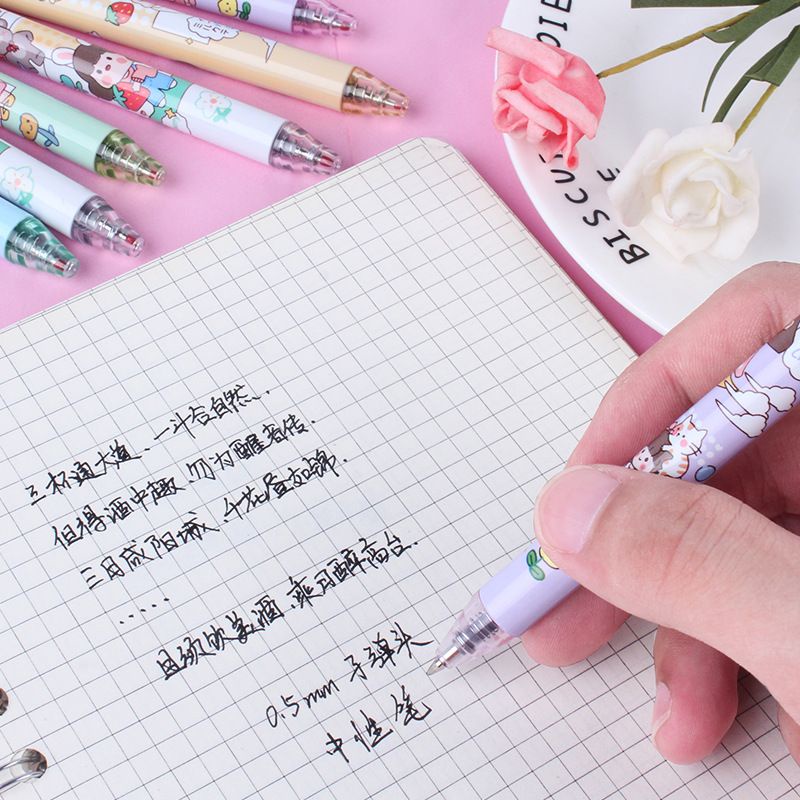 三杯通大道,一斗合自然,
但得酒中趣,勿为醒者传.
三月咸阳城,千花昼如锦.
.....
且须饮美酒,乘月醉高台.
0.5mm 子弹头
中性笔
BISCUI